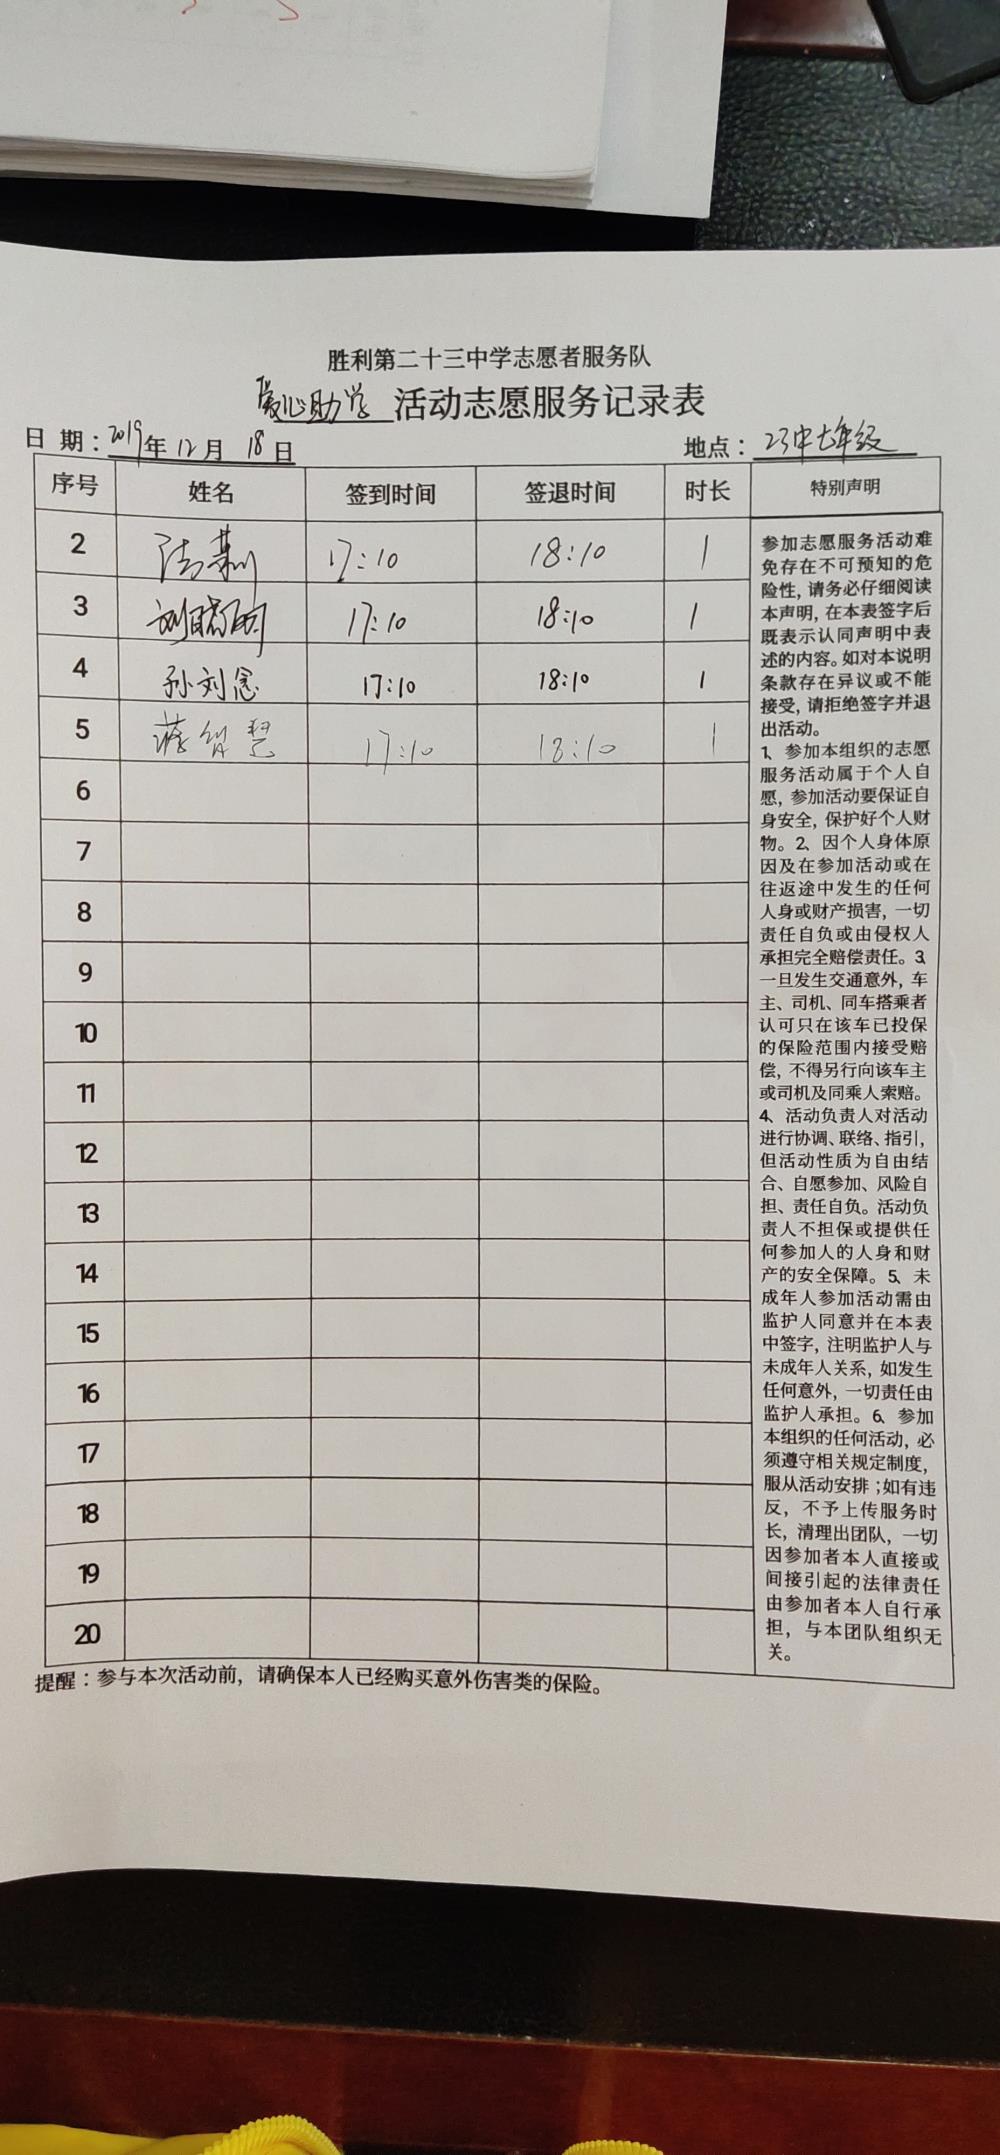 胜利第二十三中学志愿者服务队
爱心助学 活动志愿服务记录表
日 期：2019年12月 18日 地点：23中七年级
序号 姓名 签到时间 签退时间 时长 特别声明
2 17:10 18:10 1
3 17:10 18:10 1
4 孙刘念 17:10 18:10 1
5 蒋智慧 17:10 18:10 1
6
7
8
9
10
11
12
13
14
15
16
17
18
19
20
参加志愿服务活动难
免存在不可预知的危
险性，请务必仔细阅读
本声明，在本表签字后
既表示认同声明中表
述的内容。如对本说明
条款存在异议或不能
接受，请拒绝签字并退
出活动。
1、参加本组织的志愿
服务活动属于个人自
愿，参加活动要保证自
身安全，保护好个人财
物。2、因个人身体原
因及在参加活动或在
往返途中发生的任何
人身或财产损害，一切
责任自负或由侵权人
承担完全赔偿责任。3、
一旦发生交通意外，车
主、司机、同车搭乘者
认可只在该车已投保
的保险范围内接受赔
偿，不得另行向该车主
或司机及同乘人索赔。
4、活动负责人对活动
进行协调、联络、指引，
但活动性质为自由结
合、自愿参加、风险自
担、责任自负。活动负
责人不担保或提供任
何参加人的人身和财
产的安全保障。5、未
成年人参加活动需由
监护人同意并在本表
中签字，注明监护人与
未成年人关系，如发生
任何意外，一切责任由
监护人承担。6、参加
本组织的任何活动，必
须遵守相关规定制度，
服从活动安排；如有违
反，不予上传服务时
长，清理出团队，一切
因参加者本人直接或
间接引起的法律责任
由参加者本人自行承
担，与本团队组织无
关。
提醒：参与本次活动前，请确保本人已经购买意外伤害类的保险。